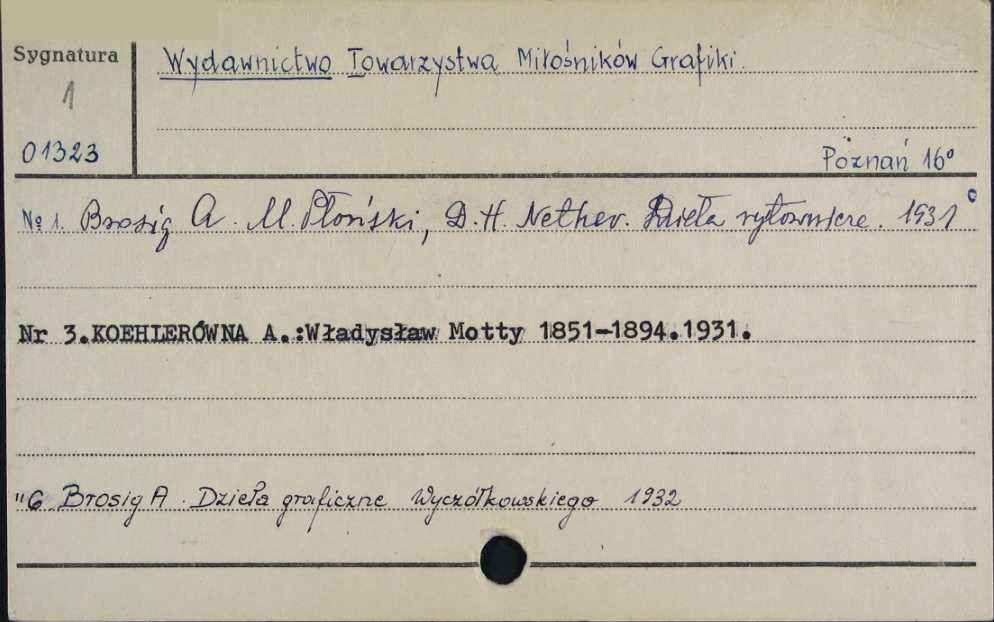 Sygnatura
1
01323
Wydawnictwo Towarzystwa Miłośników Grafiki.
Poznań 16°
№ 1. Brosig A. M. Płoński, D. H. Nether. Dzieła rytownicze. 1931
Nr 3.KOEHLERÓWNA A.:Władysław Motty 1851-1894.1931.
"6 Brosig A. Dzieła graficzne Wyczółkowskiego 1932